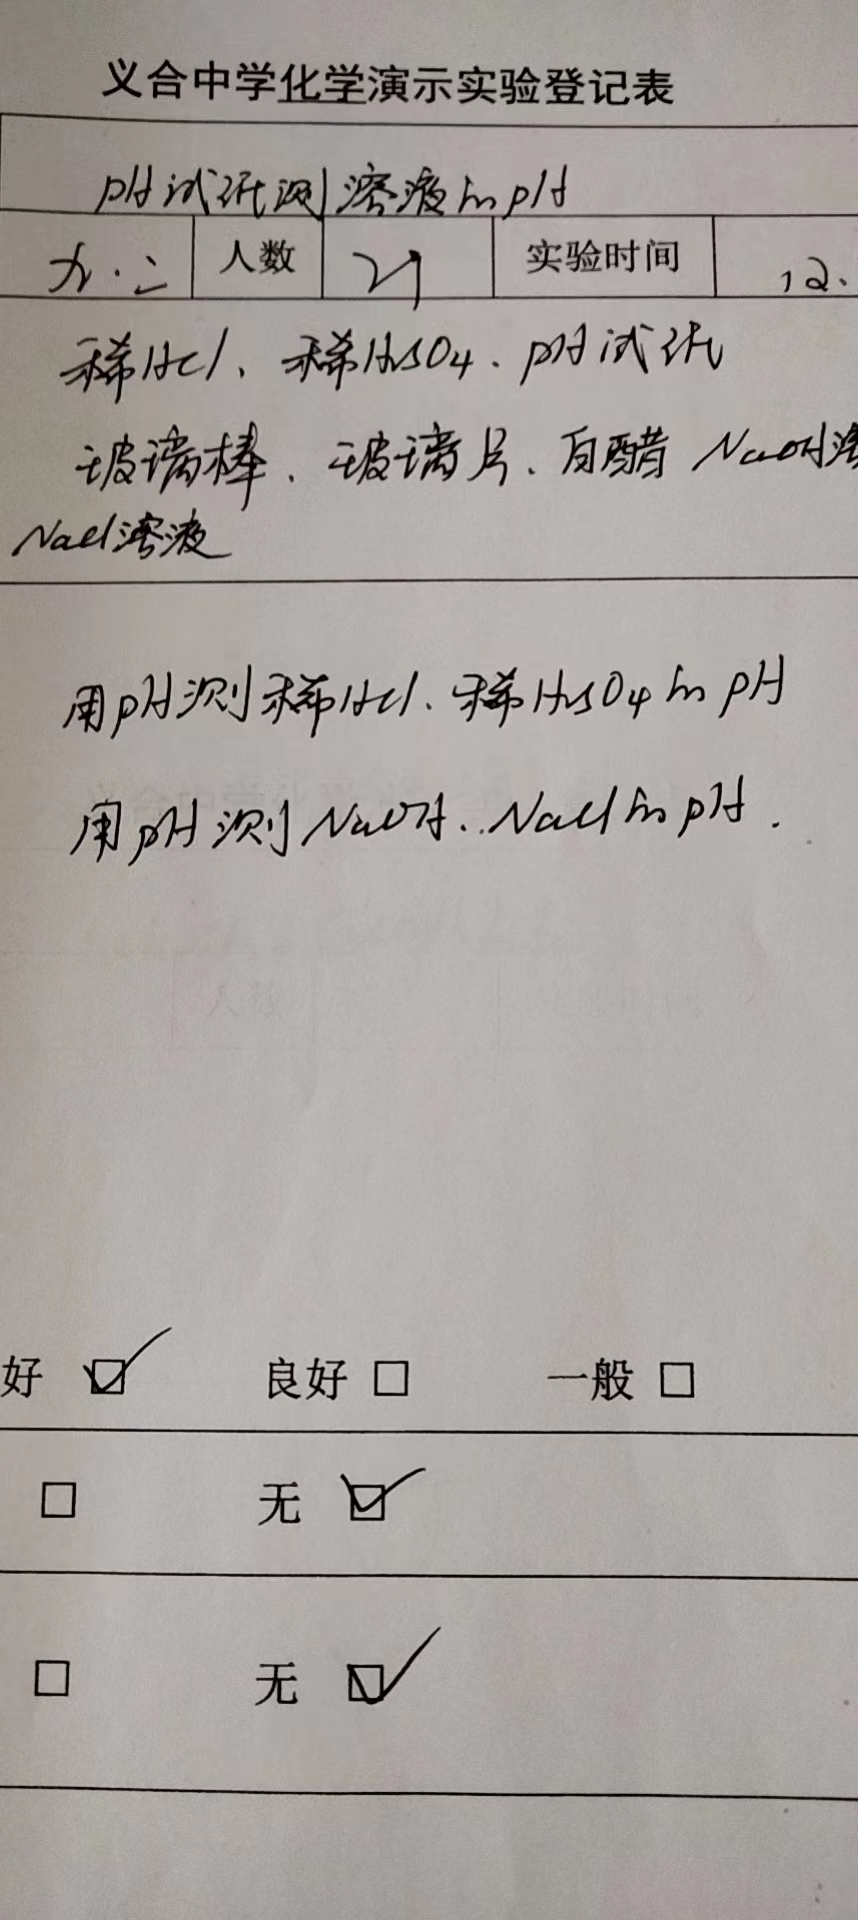 义合中学化学演示实验登记表
pH试纸测溶液的pH
九.二 人数 21 实验时间 12.
稀HCl、稀H2SO4、pH试纸
玻璃棒、玻璃片、白醋 NaOH溶
NaCl溶液
用pH测稀HCl、稀H2SO4的pH
用pH测NaOH、NaCl的pH.
好 ☑ 良好 □ 一般 □
□ 无 ☑
□ 无 ☑